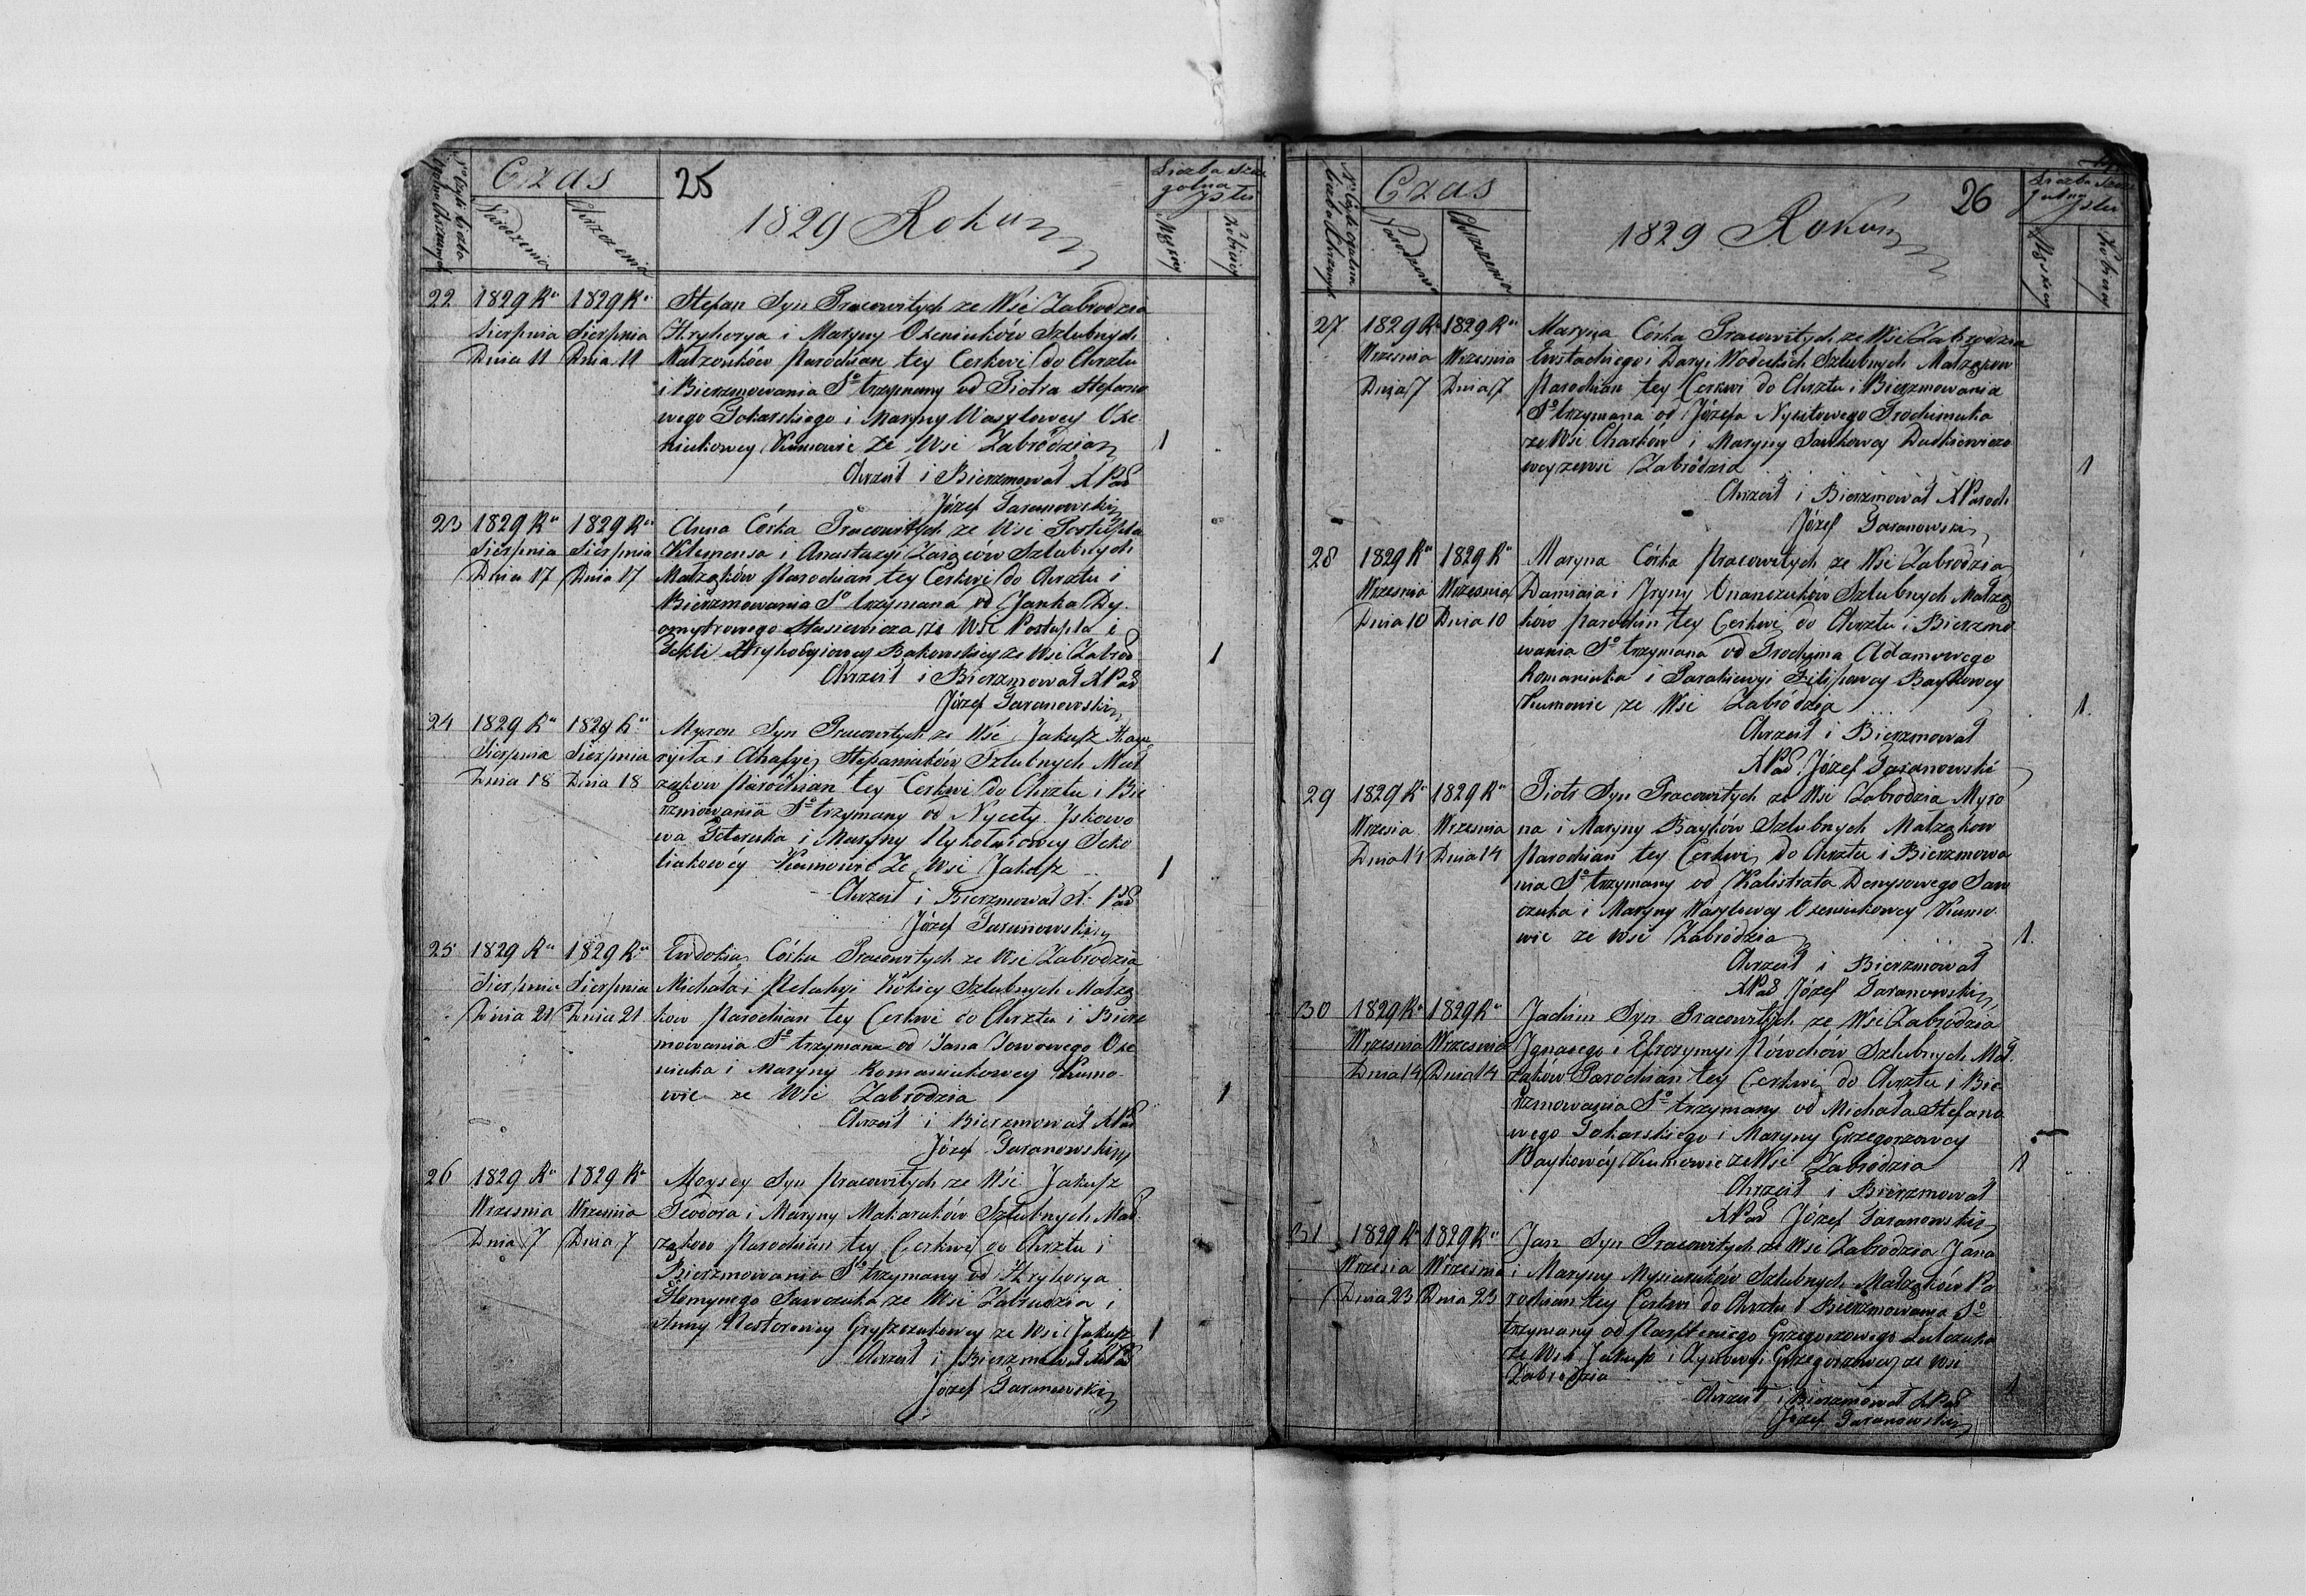 25
Czas
Narodzenia
Chrzczenia
1829 Roku
Liczba szcze
gólna
Męscy
Kobiecy
22
1829 Ru
1829 Ru
Sierpnia
Sierpnia
Dnia 11
Dnia 11
Stefan Syn Pracowitych ze Wsi Zabrodzia
Hryhorya i Maryny Ożeniuków Szlubnych
Małżonków Parochian tey Cerkwi do Chrztu
i Bierzmowania So trzymany od Piotra Stefano
wego Tokarskiego i Maryny Wasylowey Oże
niukowey Kumowie ze Wsi Zabrodzia
1
Chrzcił i Bierzmował X Pad
Józef Taranowski
23
1829 Ru
1829 Ru
Sierpnia
Sierpnia
Dnia 17
Dnia 17
Anna Córka Pracowitych ze Wsi Postupla
Klemensa i Anastazyi Zaiąców Szlubnych
Małżąków Parochian tey Cerkwi do Chrztu i
Bierzmowania So trzymana od Janka Dy
omytrowego Stasiewicza ze Wsi Postupla i
Tekli Hryhoryowey Bakowskiey ze Wsi Zabrod
1
Chrzcił i Bierzmował X Pad
Józef Taranowski
24
1829 Ru
1829 Ru
Sierpnia
Sierpnia
Dnia 18
Dnia 18
Myron Syn Pracowitych ze Wsi Jakusz
i Ahafyi Stepaniuków Szlubnych Mał
żąkow Parochian tey Cerkwi do Chrztu i Bie
rzmowania So trzymany od Nycety Iskowo
wa i Maryny Mykołaiowey Soko
liukowey Kumowie Ze Wsi Jakusz
1
Chrzcił i Bierzmował X Pad
Józef Taranowski
25
1829 Ru
1829 Ru
Sierpnia
Sierpnia
Dnia 21
Dnia 21
Ewdokia Córka Pracowitych ze Wsi Zabrodzia
Michała i Pelahyi Szlubnych Małżą
kow Parochian tey Cerkwi do Chrztu i Bierz
mowania So trzymana od Jana Jowowego Oże
niuka i Maryny Romaniukowey Kumo
wie ze Wsi Zabrodzia
1
Chrzcił i Bierzmował X Pad
Józef Taranowski
26
1829 Ru
1829 Ru
Wrzesnia
Wrzesnia
Dnia 7
Dnia 7
Moysey Syn Pracowitych ze Wsi Jakusz
Teodora i Maryny Makaruków Szlubnych Mał
żąkow Parochian tey Cerkwi do Chrztu i
Bierzmowania So trzymany od Hryhorya
Sawczuka ze Wsi Zabrodzia i
Anny Nesterowey Gryszczukowey ze Wsi Jakusz
1
Chrzcił i Bierzmował X Pad
Józef Taranowski
26
Czas
Narodzenia
Chrzczenia
1829 Roku
Liczba szcze
gulna
Męskiey
Kobiecey
27
1829 Ru
1829 Ru
Wrzesnia
Wrzesnia
Dnia 7
Dnia 7
Maryna Córka Pracowitych ze Wsi Zabrodzia
Eustachiego i Daryi Wodeckich Szlubnych Małżąkow
Parochian tey Cerkwi do Chrztu i Bierzmowania
So trzymana od Józefa Trochimuka
ze Wsi Charków i Maryny Sawkowey Dudkiewiczo
wey ze Wsi Zabrodzia
1
Chrzcił i Bierzmował X Paroch
Józef Taranowski
28
1829 Ru
1829 Ru
Wrzesnia
Wrzesnia
Dnia 10
Dnia 10
Maryna Córka Pracowitych ze Wsi Zabrodzia
Damiana i Iryny Onanczuków Szlubnych Małżą
ków Parochian tey Cerkwi do Chrztu i Bierzmo
wania So trzymana od Trochyma Adamowego
Romaniuka i Paraskiewyi Filipowey Baykowey
Kumowie ze Wsi Zabródzia
1
Chrzcił i Bierzmował
X Pad Józef Taranowski
29
1829 Ru
1829 Ru
Wrzesia
Wrzesnia
Dnia 14
Dnia 14
Piotr Syn Pracowitych ze Wsi Zabrodzia Myro
na i Maryny Bayków Szlubnych Małżąkow
Parochian tey Cerkwi do Chrztu i Bierzmowa
nia So trzymany od Kalistrata Denysowego Saw
czuka i Maryny Wasylowey Ożeniukowey Kumo
wie ze Wsi Zabródzia
1
Chrzcił i Bierzmował
X Pad Józef Taranowski
30
1829 Ru
1829 Ru
Wrzesnia
Wrzesnia
Dnia 14
Dnia 14
Jachim Syn Pracowitych ze Wsi Zabródzia
Ignacego i Efrozymyi Szlubnych Mał
żąków Parochian tey Cerkwi do Chrztu i Bie
rzmowania So trzymany od Michała Stefano
wego Tokarskiego i Maryny Grzegorzowey
Baykowey Kumowie ze Wsi Zabródzia
1
Chrzcił i Bierzmował
X Pad Józef Taranowski
31
1829 Ru
1829 Ru
Wrzesnia
Wrzesnia
Dnia 23
Dnia 23
Jan Syn Pracowitych ze Wsi Zabrodzia Jana
i Maryny Szlubnych Małżąków Pa
rochian tey Cerkwi do Chrztu i Bierzmowania So
trzymany od Grzegorzowego
ze Wsi Jakusz i Grzegorzowey ze Wsi
Zabrodzia
1
Chrzcił i Bierzmował X Pad
Józef Taranowski